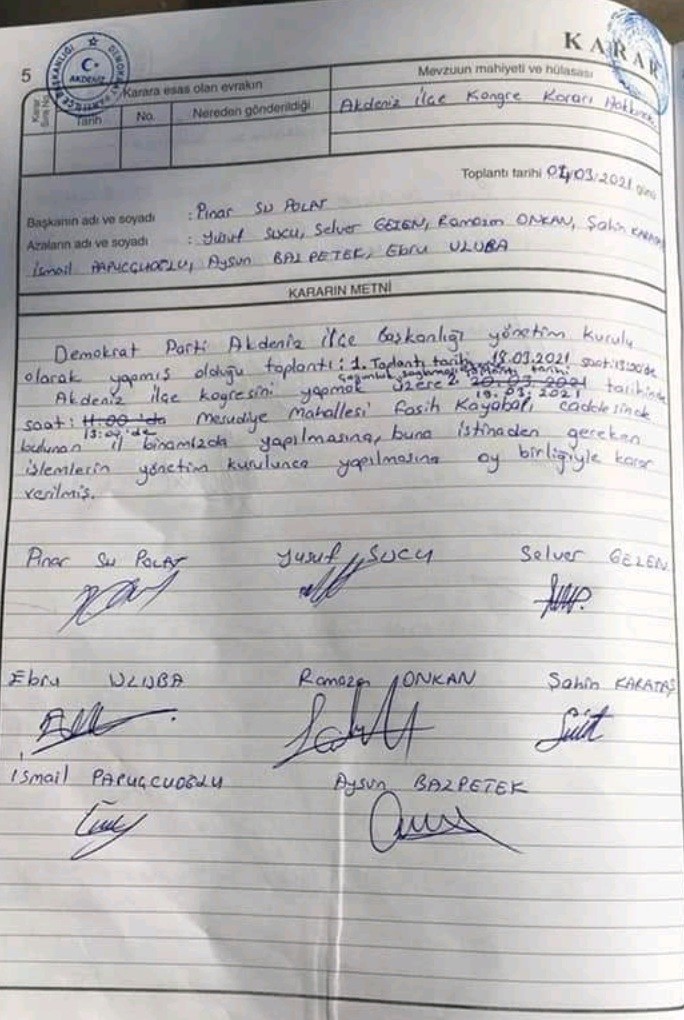 KARAR
5
DEMOKRAT PARTİ
İLÇE BAŞKANLIĞI
AKDENİZ
Karar Sıra No
Karara esas olan evrakın
Mevzuun mahiyeti ve hülasası
Tarih
No.
Nereden gönderildiği
Akdeniz İlçe Kongre Kararı Hakkında
Toplantı tarihi 01/03/2021 günü
Başkanın adı ve soyadı : Pınar SU POLAT
Azaların adı ve soyadı : Yusuf SUCU, Selver GEZEN, Ramazan ONKAN, Şahin KARATAŞ
İsmail PAPUCCUOĞLU, Aysun BAZPETEK, Ebru ULUBA
KARARIN METNİ
Demokrat Parti Akdeniz ilçe başkanlığı yönetim kurulu
olarak yapmış olduğu toplantı: 1. Toplantı tarihi 18.03.2021 saat:13:00'de
çoğunluk sağlanmadığı tarihi
Akdeniz ilçe kogresini yapmak üzere 2. 20.03.2021 tarihinde
19.03.2021
saat: 11:00 'da Mesudiye Mahallesi Fasih Kayabalı caddesinde
13:00'de
bulunan il binamızda yapılmasına, buna istinaden gereken
işlemlerin yönetim kurulunca yapılmasına oy birliğiyle karar
verilmiş.
Pınar SU POLAT
Yusuf SUCU
Selver GEZEN
Ebru ULUBA
Ramazan ONKAN
Şahin KARATAŞ
İsmail PAPUÇCUOĞLU
Aysun BAZPETEK